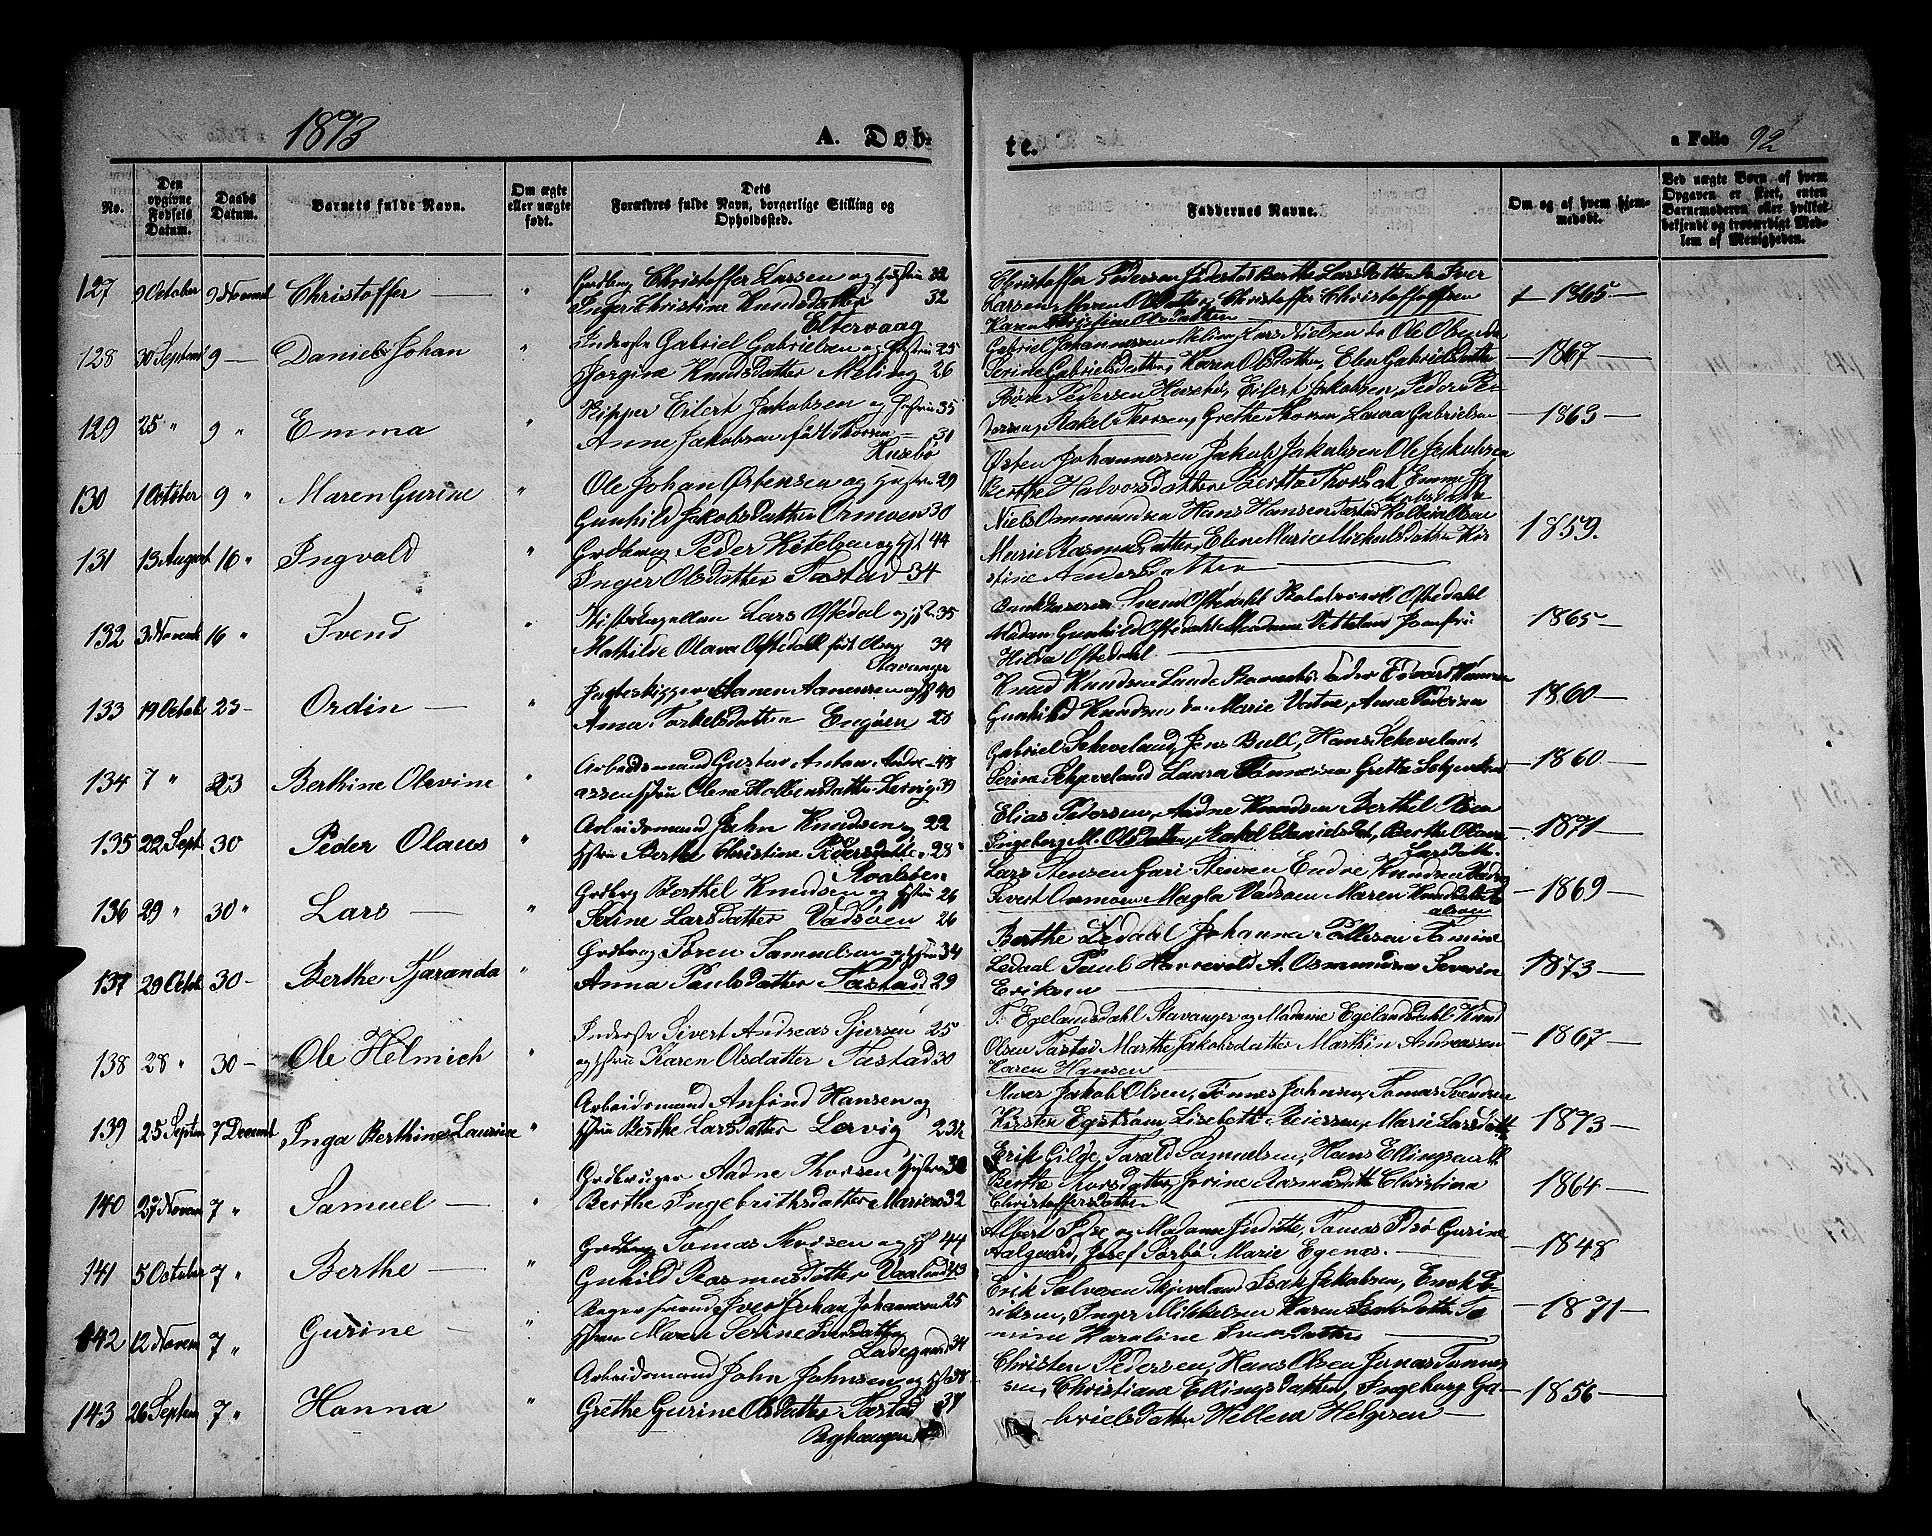 1873
A. Døb-
te.
a Folio 92
No.
Den opgivne Fødsels Datum.
Daabs Datum.
Barnets fulde Navn.
Om ægte eller uægte født.
Dets Forældres fulde Navn, borgerlige Stilling og Opholdssted.
Faddernes Navne.
Om og af hvem hjemmedøbt.
Ved uægte Børn, af hvem Opgaven er skeet, enten Barnemoderen eller hvilket bekjendt og troværdigt Medlem af Menigheden.
127 9 October 9 Novemb Christoffer — "
Grdbrug Christoffer Larsen og Hustru 32
Inger Christine Knudsdatter 32
Eltervaag
Christoffer Pedersen Berthe Larsdatter Iver
Larsen, Maren Olsdatter, Christoffer Christoffersen
Karen Christine Olsdatter
1865 —
128 30 Septemb 9 — Daniel Johan "
Inderste Gabriel Gabrielsen og Hustru 25
Jorgine Knudsdatter Meling 26
Gabriel Johannessen Meling, Lars Nielsen do Ole Olsen do
Serine Gabrielsdatter, Karen Olsdatter, Elen Gabrielsdatter
— 1867 —
129 25 " 9 " Emma "
Skipper Eilert Jakobsen og Hustru 35
Anne Jakobsen født Thorsen — 31
Husebø
Pedersen Husebø, Eilert Jakobsen, Peder Pe-
dersen, Rakel Thorsen, Grethe Thorsen, Laura Gabrielsen
— 1863 —
130 1 October 9 " Maren Gurine "
Ole Johan Østensen og Hustru 29
Gunhild Jakobsdatter Ormøen 30
Østen Johannessen Jakob Jakobsen Ole Jakobsen
Berthe Halvorsdatter Bertha Thorsdat Emme Ja
kobsdatter
131 13 August 16 " Ingvald "
Grdbrug Peder Ketelsen og Hst 44
Inger Olsdatter Tastad 34
Niels Ommundsen Hans Hansen Tastad Kolbein Olsen
Marie Rasmusdatter, Elen Marie Mikkelsdatter Kir
stine Andersdatter —
1859.
132 3 Novemb 16 " Svend "
Lars Oftedal og Hstru 35
Mathilde Olava Oftedal født Olsen 34
Stavanger
Svend Oftedahl Oftedahl
Madam Gunhild Oftedahl Madame Jomfru
Hilda Oftedahl —
1865 —
133 19 Octob 23 — Ordin — "
Jagteskipper Aanen Aanensen og Hst 40
Anna Torkelsdatter Engøen 25
Knud Knudsen Lunde
Gunhild Knudsen do Marie Vatne, Anne Pedersen
1860 —
134 7 " 23 Berthine Olevine "
Arbeidsmand Gustav Anton Andre- 48
assen Hstru Olene Kolbensdatter Lervig 39
Gabriel Scheveland, Jens Bull, Hans Scheveland,
Serine Schjeveland Laura Tønnesen Grethe
— 1860 —
135 22 Sept. 30 Peder Olaus "
Arbeidsmand John Knudsen og 22
Hstru Berthe Christine Pedersdatter 28
Roalsøen
Elias Pedersen, Aadne Knudsen Berthel Olsen
Ingeborg M. Olsdatter, Rakel Danielsdat, Berthe Olava
Larsdatter
— 1871 —
136 29 " 30 " Lars — "
Grdbrg Berthel Knudsen og Hstru 26
Serine Larsdatter Vadsøen 26
Lars Stensen Guri Stensen Endre Knudsen
Sivert Ormøen Magla Vadsøen Maren Knudsdatter
— 1869 —
137 29 Octob. 30 — Berthe Tjaranda "
Grdbrug Søren Samuelsen og Hstru 34
Anna Paulsdatter Tastad 29
Berthe Ledahl Johanna Pallesen Tomine
Ledaal Paul A. Osmundsen Severin
Eriksen —
— 1873 —
138 28 " 30 — Ole Helmich "
Inderste Sivert Andreas Sjursen 25
og Hstru Karen Olsdatter Tastad 30
T. Egelandsdahl Stavanger og Madame Egelandsdahl Knud
Olsen Tastad Marthe Jakobsdatter Marthin Andreassen
Karen Hansen —
— 1867 —
139 25 Septem 7 Decemb Inga Berthine Laurine "
Arbeidsmand Anfind Hansen og
Hstru Berthe Larsdatter Lervig 23½
Murer Jakob Olsen, Tønnes Johnsen, Tomas Svendsen
Kirsten Egstrøm, Lisebeth Reiersen, Marie Larsdatt
1873 —
140 27 Novem 7 " Samuel — "
Grdbruger Aadne Thorsen Hustru 32
Berthe Ingebrithsdatter Mariero 32
Erik Gilje, Tarald Samuelsen, Hans Ellingsen
Berthe Thorsdatter Jorine Rasmusdatte Christina
Christoffersdatter
1864 —
141 5 October 7 " Berthe — "
Grdbrug Tomas Iversen og Hst 44
Gnhild Rasmusdatter Vaaland 43
Albert Idse og Madame Judithe, Tomas Idsø Gurine
Aalgaard, Josef Sørbø Marie Egenes.
— 1848
142 12 Novem 7 " Gurine — "
Bager Svend Iver Johan Johannesen 25
Hstru Maren Serine Svendsdatter
Ladegaard 34
Erik Salvesen Skjæveland Isak Jakobsen, Enok E-
riksen, Inger Mikkelsen Karen Isaksdatter To
mine Karoline Svendsdatter —
— 1871 —
143 26 Septem 7 " Hanna "
Arbeidsmand John Johnsen og Hstru 38
Grethe Gurine Olsdatter Tastad 37
Byhaugen
Christen Pedersen, Hans Olsen Jonas Tønnes
sen, Christiana Ellingsdatter, Ingeborg Ga-
brielsdatter Hellene Helgesen —
— 1856 —